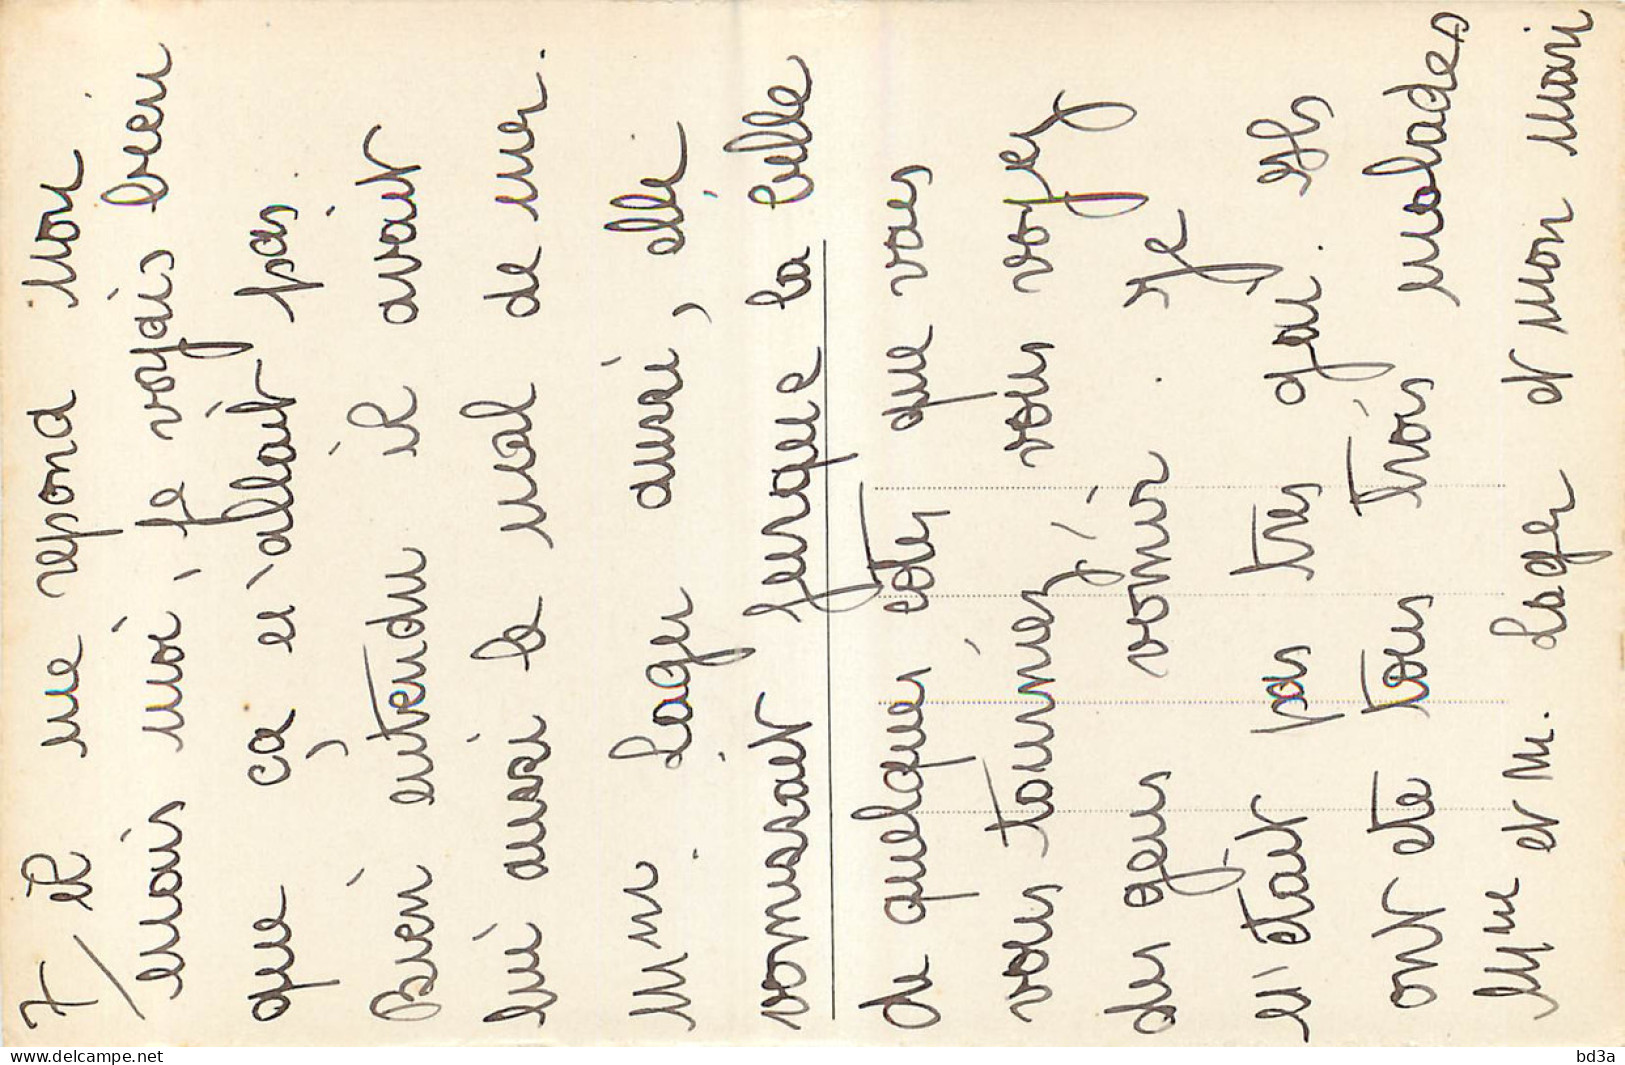 7/ il me repond non
mais moi, je voyais bien
que ça n'allait pas.
Bien entendu il avait
lui aussi le mal de mer.
Mme Lager aussi, elle
vomissait jusque la bille
de quelques cotes que vous
vous tourniez vous voyez
des gens vomir. Je
n'étais pas tres gai. Ils
ont ete tous trois malades
Mme et M. Lager et mon mari
delcampe.net
bd3a